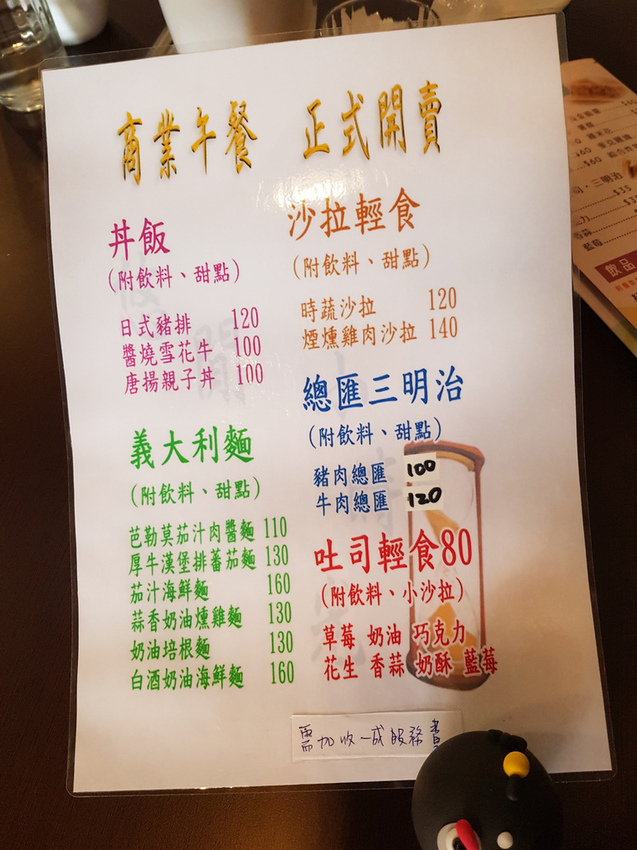 商業午餐 正式開賣
丼飯
(附飲料、甜點)
日式豬排 120
醬燒雪花牛 100
唐揚親子丼 100
義大利麵
(附飲料、甜點)
芭勒莫茄汁肉醬麵 110
厚牛漢堡排蕃茄麵 130
茄汁海鮮麵 160
蒜香奶油燻雞麵 130
奶油培根麵 130
白酒奶油海鮮麵 160
沙拉輕食
(附飲料、甜點)
時蔬沙拉 120
煙燻雞肉沙拉 140
總匯三明治
(附飲料、甜點)
豬肉總匯 100
牛肉總匯 120
吐司輕食80
(附飲料、小沙拉)
草莓 奶油 巧克力
花生 香蒜 奶酥 藍莓
需加收一成服務費
三明治
$35
飲品